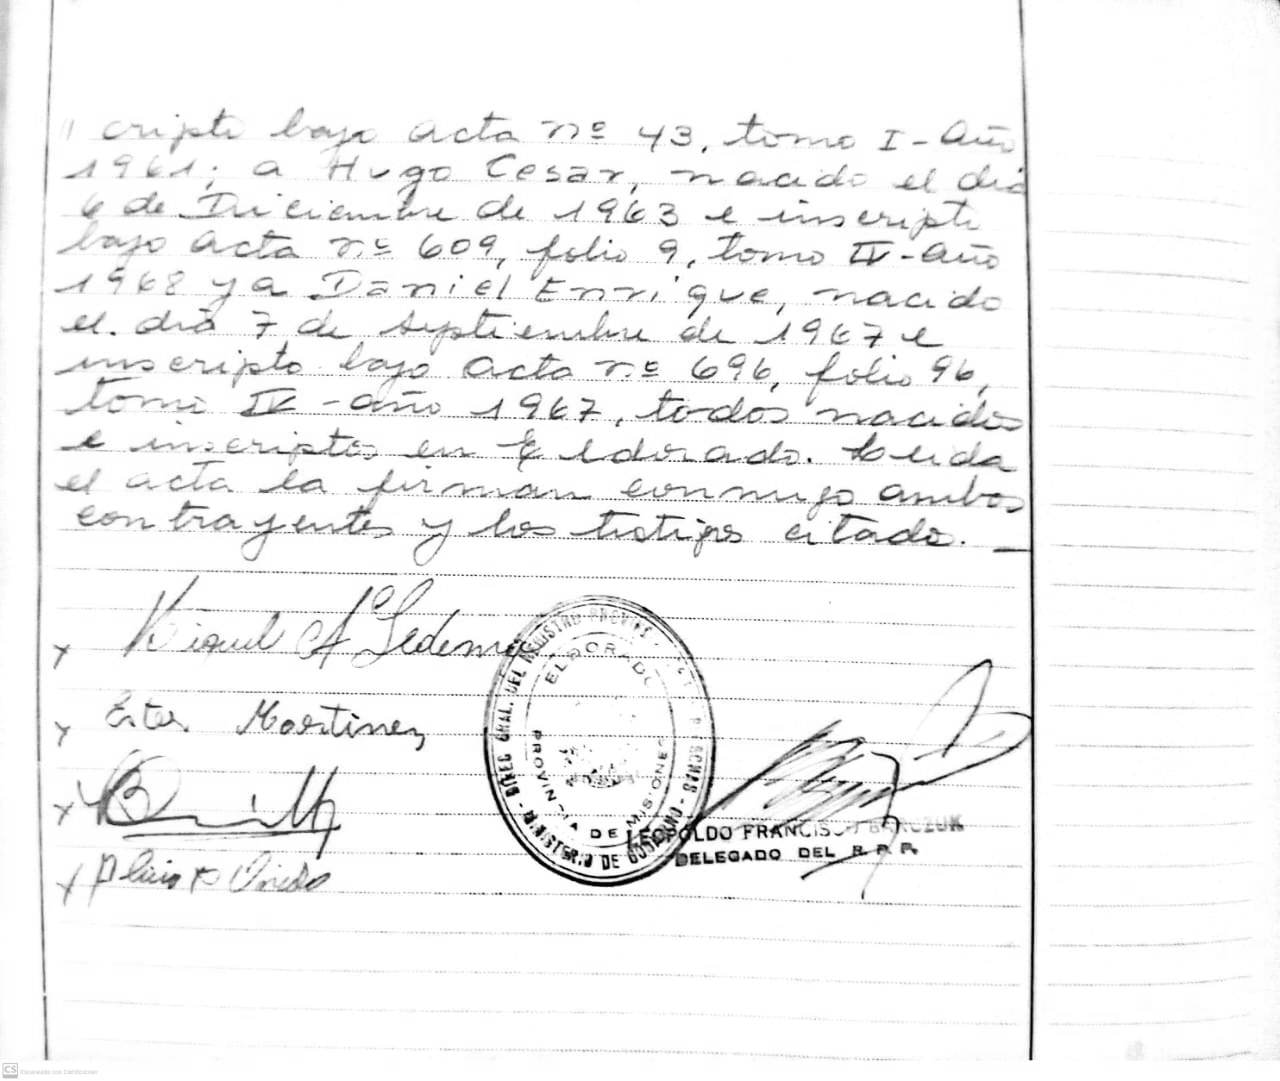 // cripto bajo acta nº 43, tomo I - Año
1961; a Hugo Cesar, nacido el dia
6 de Diciembre de 1963 e inscripto
bajo acta nº 609, folio 9, tomo IV - Año
1968 y a Daniel Enrique, nacido
el dia 7 de septiembre de 1967 e
inscripto bajo acta nº 696, folio 96,
tomo IV - año 1967, todos nacidos
e inscriptos en Eldorado. Leida
el acta la firman conmigo ambos
contrayentes y los testigos citado. —
x Miguel A Ledesma
x Ester Martinez
x
x Oviedo
DIREC. GRAL. DEL REGISTRO PROVINC. DE LAS PERSONAS - MINISTERIO DE GOBIERNO -
ELDORADO
PROVINCIA DE MISIONES
LEOPOLDO FRANCISCO
DELEGADO DEL R. P. P.
CS Escaneado con CamScanner